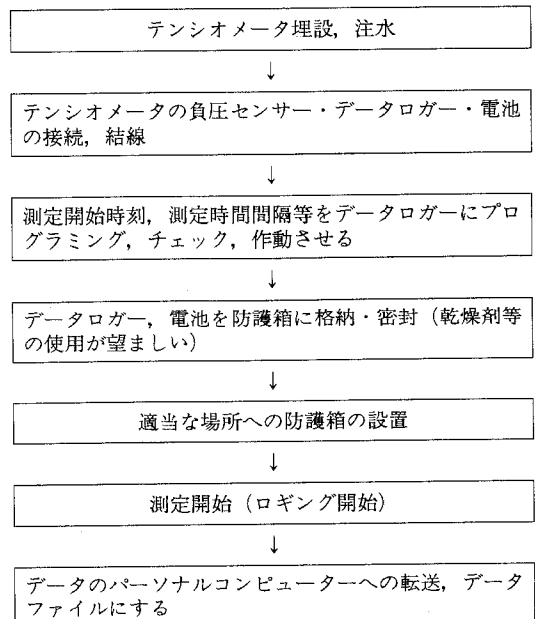 テンシオメータ埋設，注水
↓
テンシオメータの負圧センサー・データロガー・電池
の接続，結線
↓
測定開始時刻，測定時間間隔等をデータロガーにプロ
グラミング，チェック，作動させる
↓
データロガー，電池を防護箱に格納・密封（乾燥剤等
の使用が望ましい）
↓
適当な場所への防護箱の設置
↓
測定開始（ロギング開始）
↓
データのパーソナルコンピューターへの転送，データ
ファイルにする